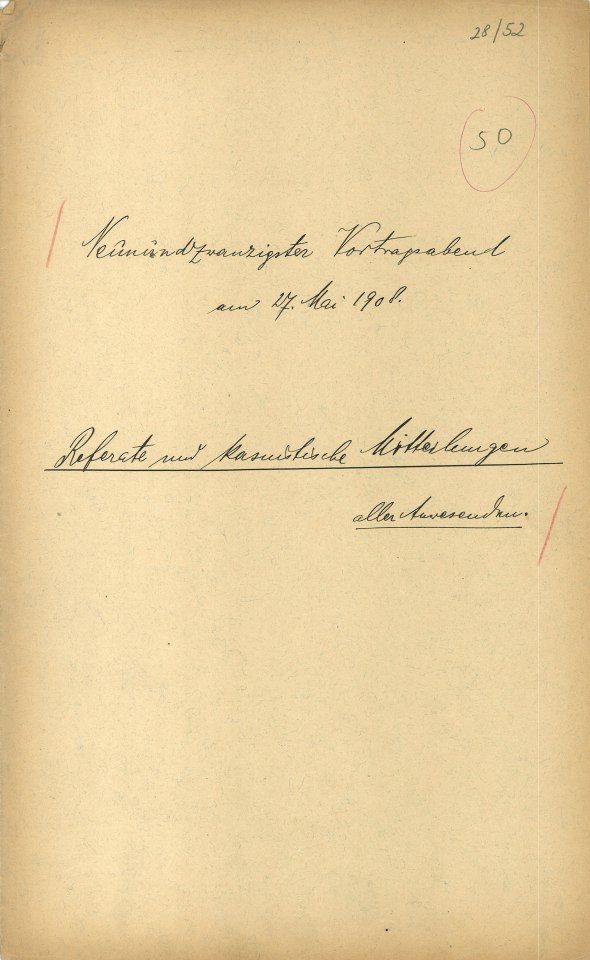 28/52
50
Neunundzwanzigster Vortragsabend
am 27. Mai 1908.
Referate und kasuistische Mitteilungen
aller Anwesenden.